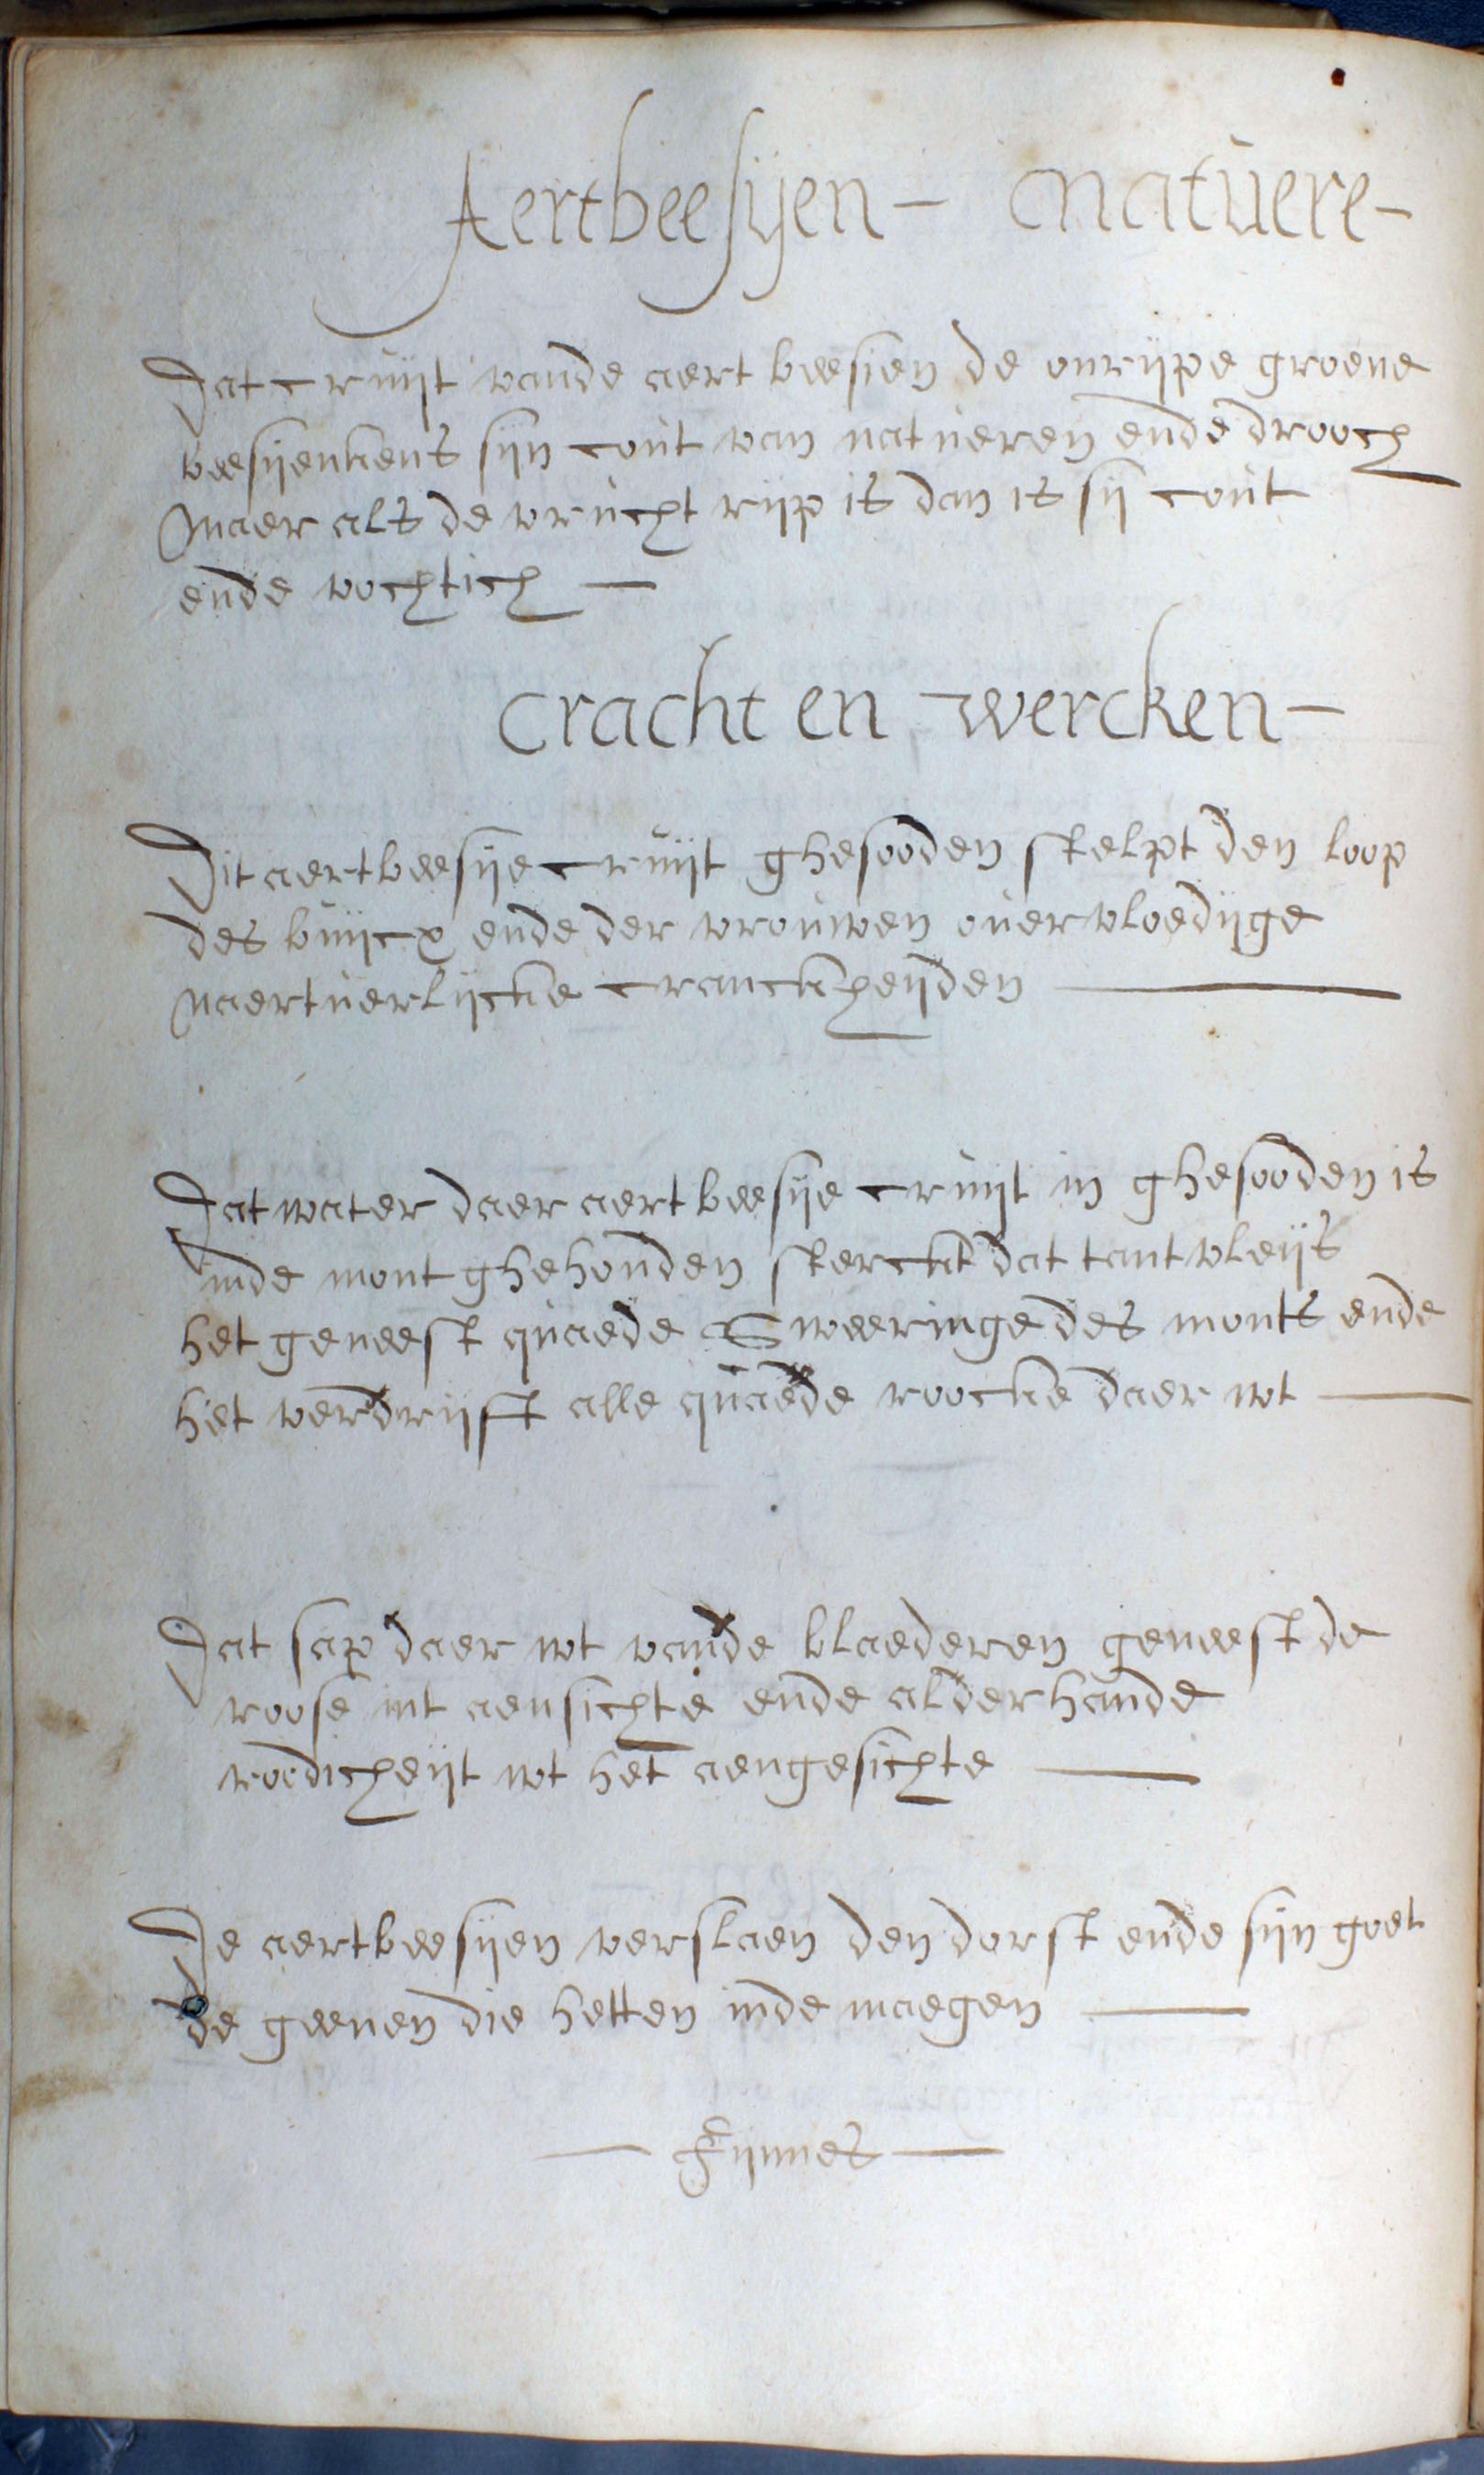 Aertbeesijen - natuere -
Dat cruijt vande aert beesien de onrijpe groene
beesijenkens sijn cout van natueren ende drooch
Maer als de vrucht rijp is dan is sij cout
ende vochtich —
Cracht en wercken -
Dit aertbeesije cruijt ghesooden stelpt den loop
des buijcx ende der vrouwen overvloedijge
Naertuerlijcke cranckheijden —
Dat water daer aertbeesije cruijt in ghesooden is
inde mont ghehouden sterckt dat tantvleijs
het geneest quaede Sweeringe des monts ende
het verdrijft alle quaede roocke daer wt —
Dat sap daer wt vande blaederen geneest de
roose int aensichte ende alderhande
roedicheijt wt het aengesichte —
De aertbeesijen verslaen den dorst ende sijn goet
de geenen die hetten inde maegen —
— Fijnnes —